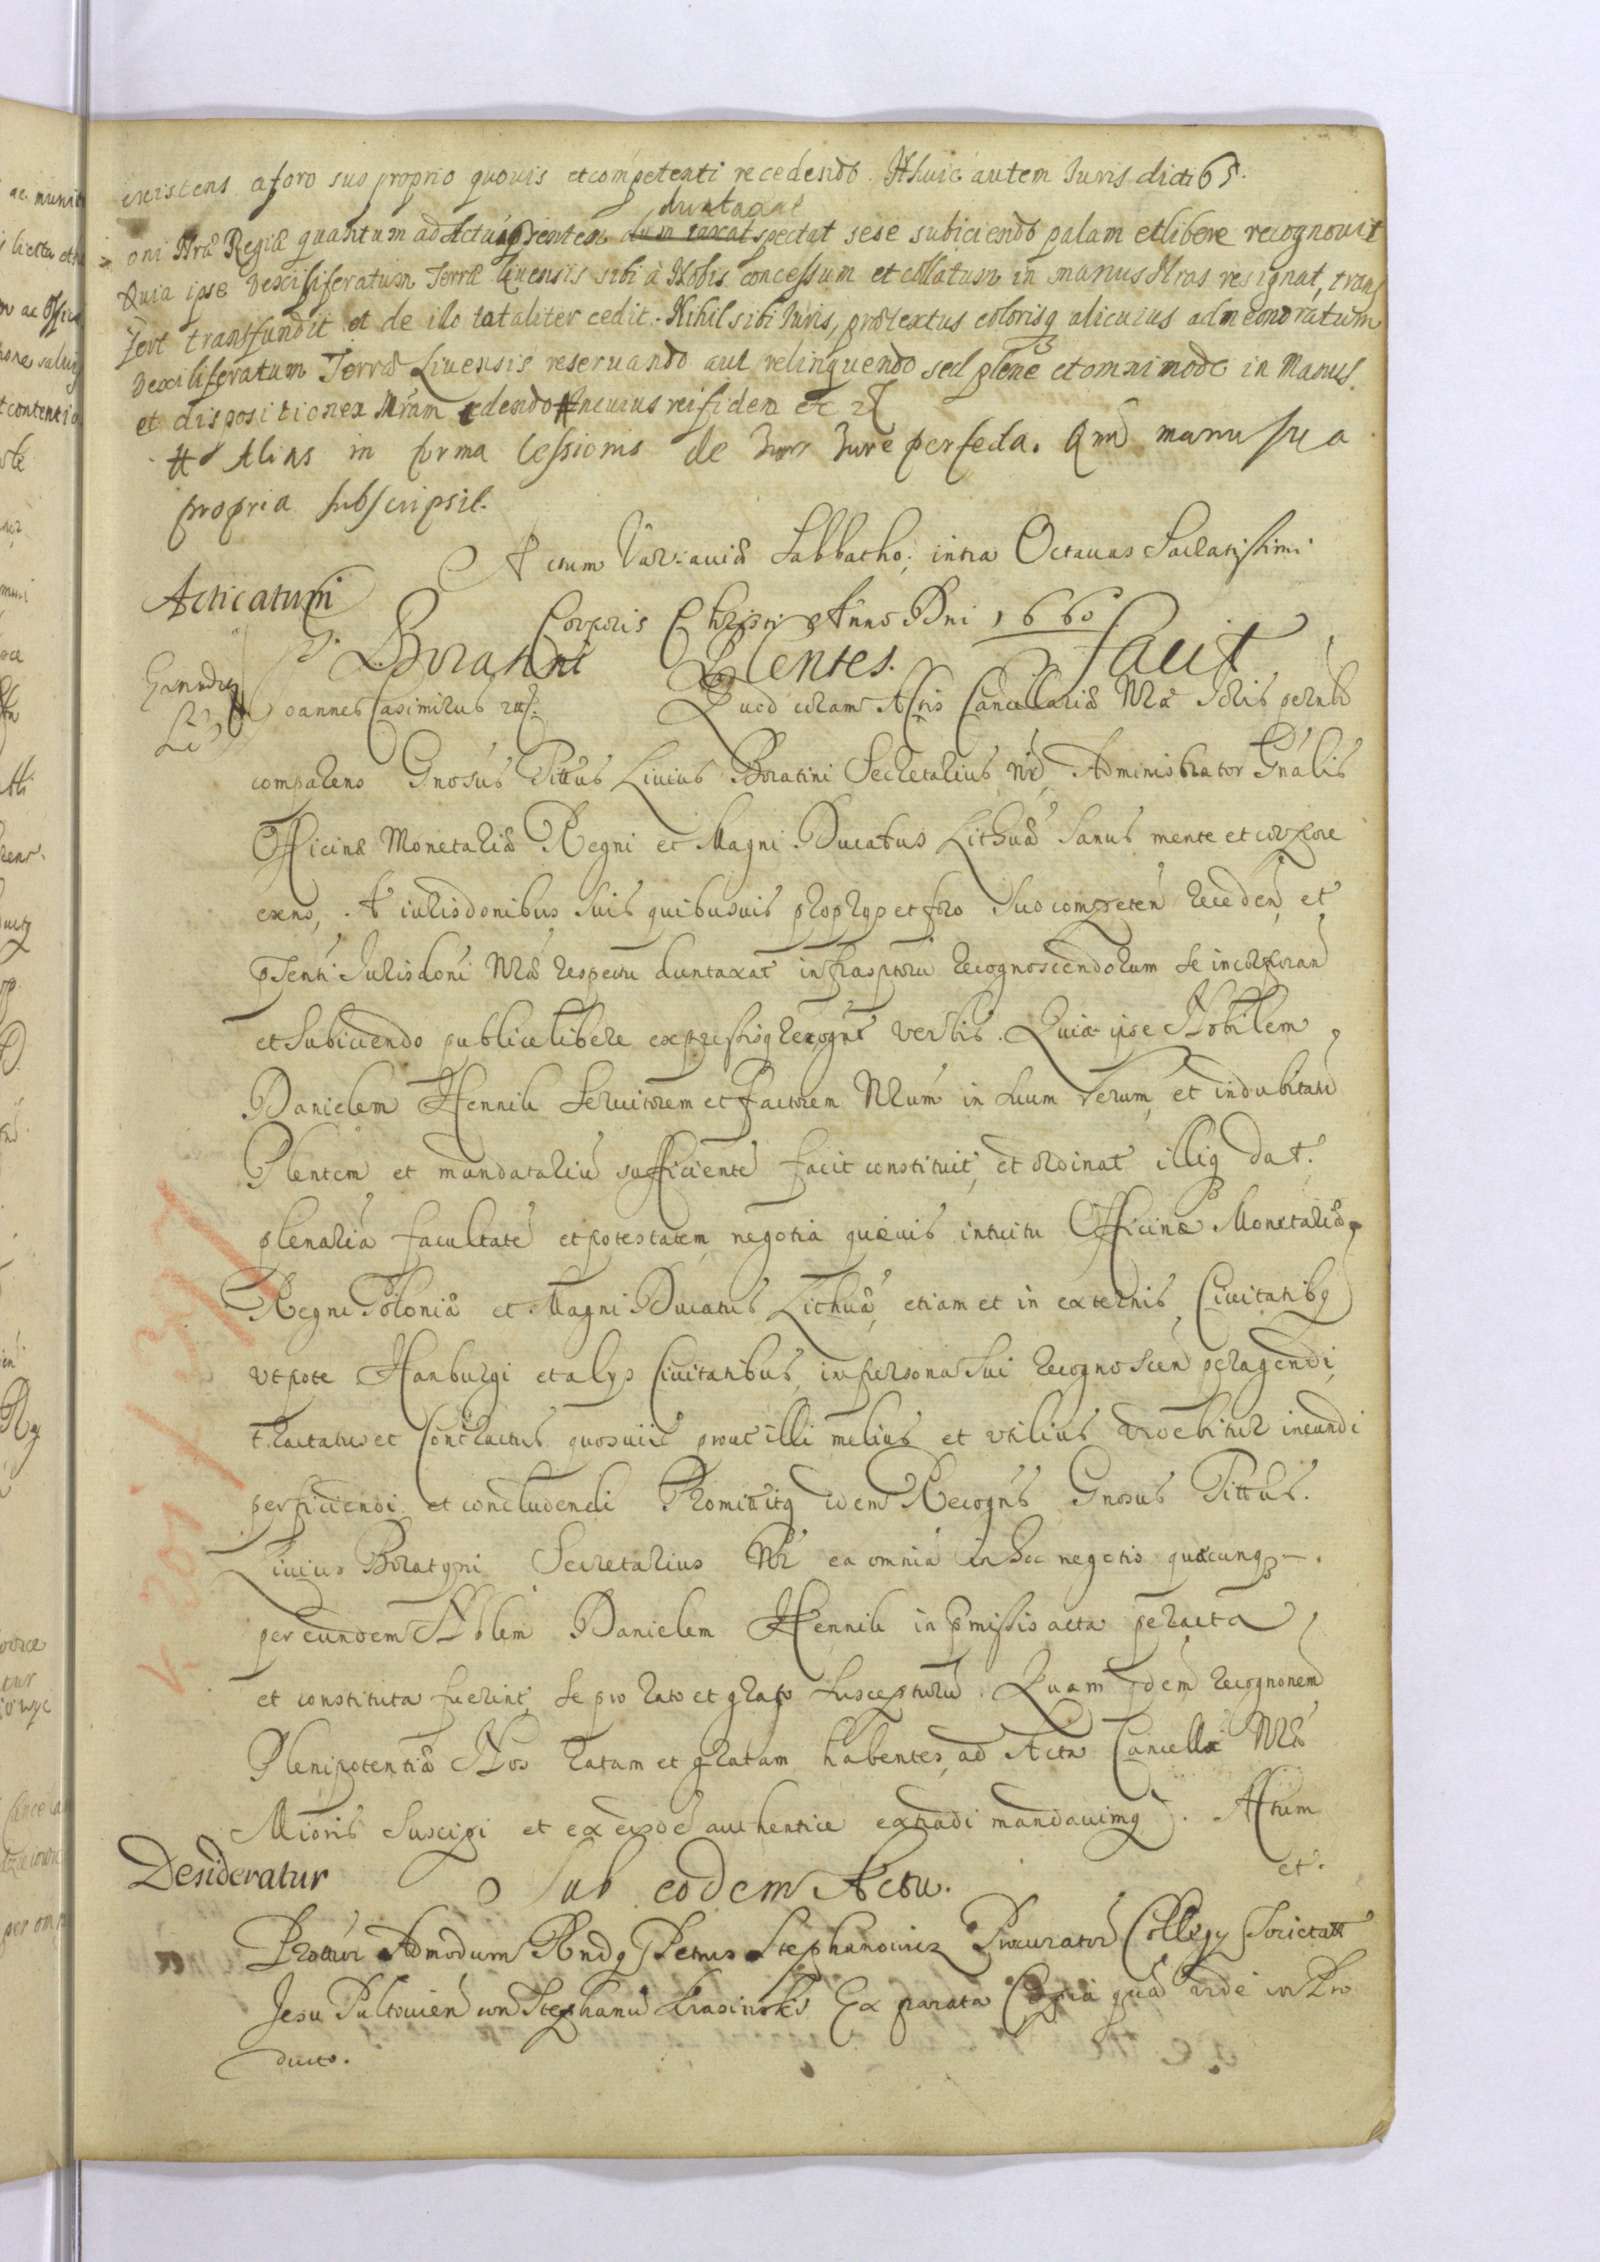 existens a foro suo proprio quovis et competenti recedendo. Huic autem Iuris dicti 65.
duntaxat
oni Nrã Regiæ quantum ad Actũ pñtem dum taxat spectat sese subiciendo palam et libere recognovit
Quia ipse Vexiliferatum Terræ Livensis sibi à Nobis concessum et collatum in manus Nras resignat, trans
fert transfundit et de illo totaliter cedit. Nihil sibi Iuris, prætextus colorisq alicuius ad memoratum
Vexiliferatum Terræ Livensis reservando aut relinquendo sed plene et omnimode in Manus
et dispositionem Nram cedendo # In cuius rei fidem etc
# Alias in forma Cessionis de Iure Iure perfecta. Qũd manu sua
propria subscripsit.
Actum Varsaviæ Sabbatho, intra Octavas Sacratissimi
Acticatum
Corporis Christi Anno Dni 1660
G. Boratini Plentes. facit
Joannes Casimirus Quod coram Actis Cancellariæ Nræ Idris perslr
comparens Gnosus Tittus Livius Boratini Secretarius Nr, Administrator Gnalis
Officinæ Monetariæ Regni et Magni Ducatus Lithuæ Sanus mente et corpore
exens, A iurisdonibus suis quibusvis proprys et foro suo competeñ receden, et
psenti Jurisdoni Nræ respectu duntaxat infrasptorũ recognoscendorum se incorporand
et subiciendo publice libere expressisq recognt verbis. Quia ipse Nobilem
Danielem Hennik Servitorem et Factorem Nrum in suum verum, et indubitatũ
Plentem et mandatariũ sufficientẽ facit constituit, et ordinat illiq dat.
plenariã facultatẽ et potestatem negotia quævis intuitu Officinæ Monetariæ
Regni Poloniæ et Magni Ducatus Lithuæ, etiam et in externis Civitatibq
utpote Hanburgi et alys Civitatibus, in persona sui recognoscen peragendi,
tractatus et Contractus quosvis prout illi melius et utilius videbitur ineundi
perficiendi et concludendi Promittitq idem Recogns Gnosus Tittus.
Livius Boratyni Secretarius Nr ea omnia in hoc negotio quæcunq
per eundem Nblem Danielem Hennik in pmissis acta peracta
et constituta fuerint, se pro rato et grato suscepturũ. Quam qdem recognonem
Plenipotentiæ Nos ratam et gratam habentes, ad Acta Cancellæ Nræ
Mioris Suscipi et ex eisdẽ authentice extradi mandavimq. Actum
et.
Desideratur Sub eodem Actu.
Admodum Rndq Petrus Stephanowicz Procurator Collegy Societatt
Jesu Pultovien con Stephanũ Krasinski Ex parata Copia quã vide in Pro
ducto.